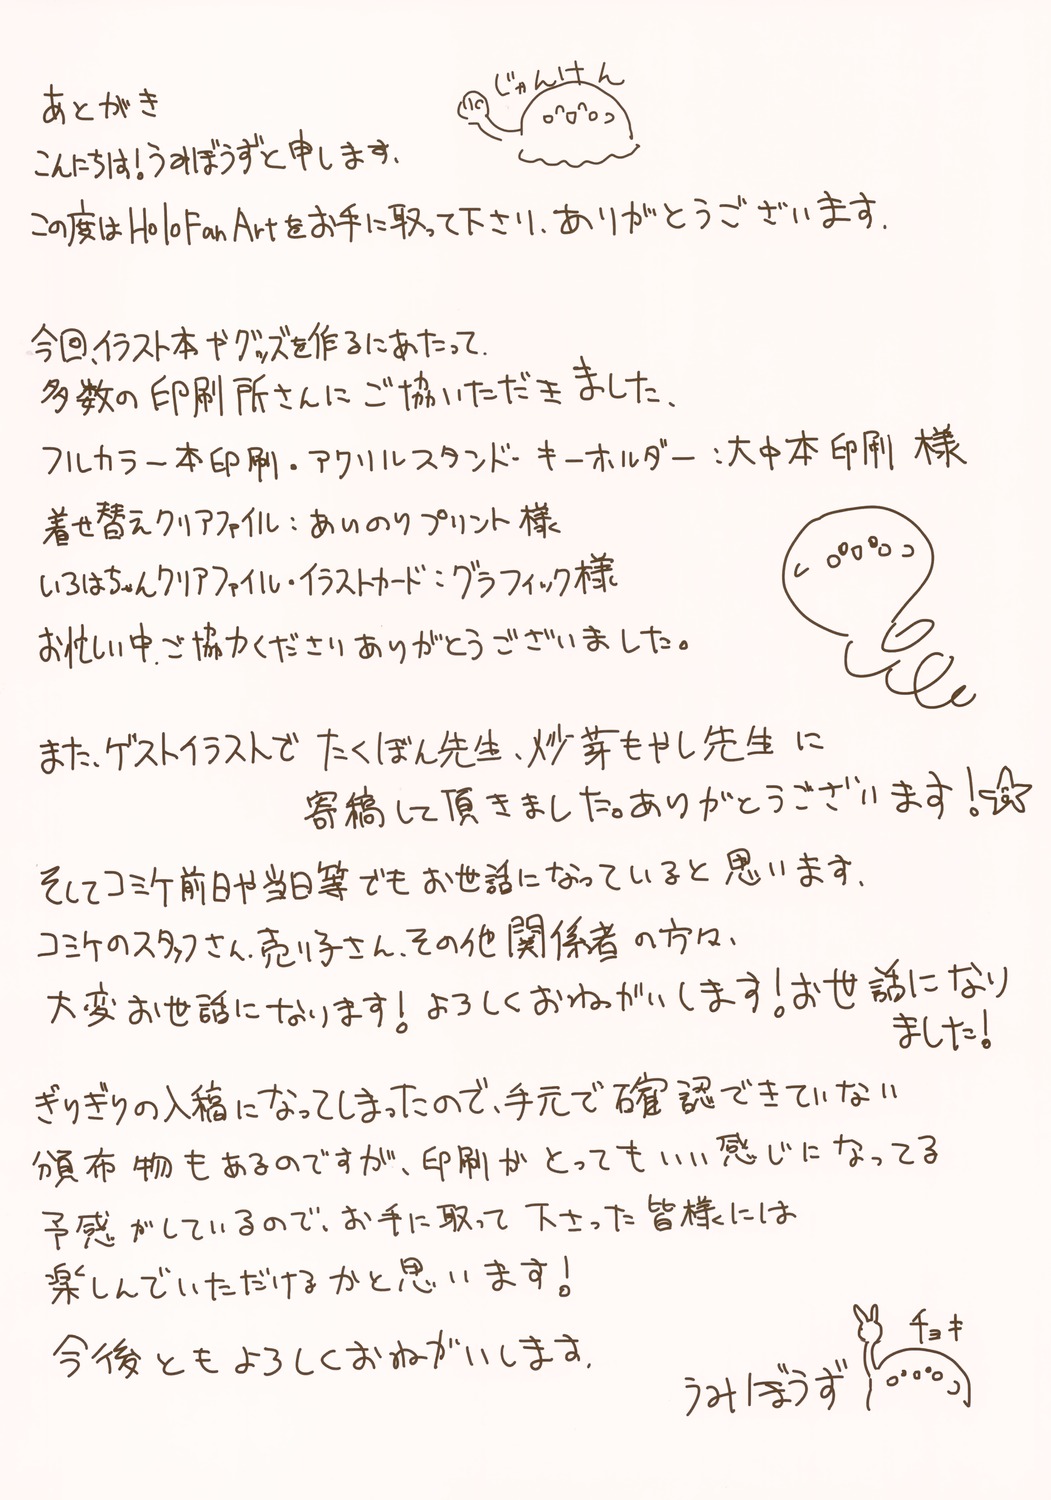 じゃんけん
あとがき
こんにちは!うみぼうずと申します、
この度はHoloFanArtをお手に取って下さり、ありがとうございます.
今回、イラスト本やグッズを作るにあたって、
多数の印刷所さんにご協いただきました、
フルカラー本印刷・アクリルスタンド・キーホルダー:大中本印刷 様
着せ替えクリアファイル:あいのりプリント様
いろはちゃんクリアファイル・イラストカード:グラフィック様
お忙しい中、ご協力くださりありがとうございました。
また、ゲストイラストで たくぼん先生、炒芽もやし先生 に
寄稿して頂きました。ありがとうございます!
そしてコミケ前日や当日等でもお世話になっていると思います、
コミケのスタッフさん、売り子さん、その他関係者の方々、
大変お世話になります!よろしくおねがいします!お世話になり
ました!
ぎりぎりの入稿になってしまったので、手元で確認できていない
頒布物もあるのですが、印刷がとってもいい感じになってる
予感がしているので、お手に取って下さった皆様には
楽しんでいただけるかと思います!
今後ともよろしくおねがいします.
チョキ
うみぼうず